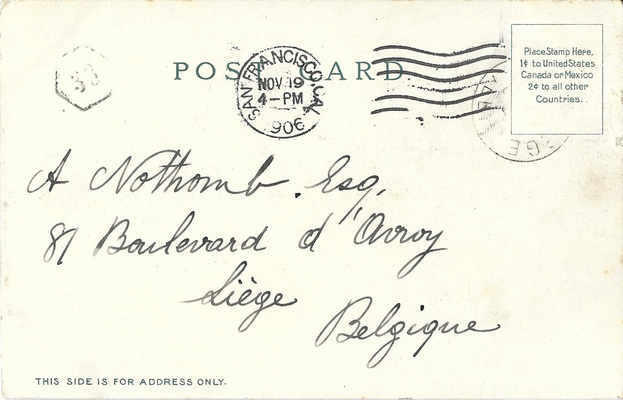 33
POST CARD
SAN FRANCISCO, CAL.
NOV 19
4-PM
906
Place Stamp Here.
1¢ to United States
Canada or Mexico
2¢ to all other
Countries.
A Nothomb. Esq.
81 Boulevard d'Avroy
Liège
Belgique
THIS SIDE IS FOR ADDRESS ONLY.